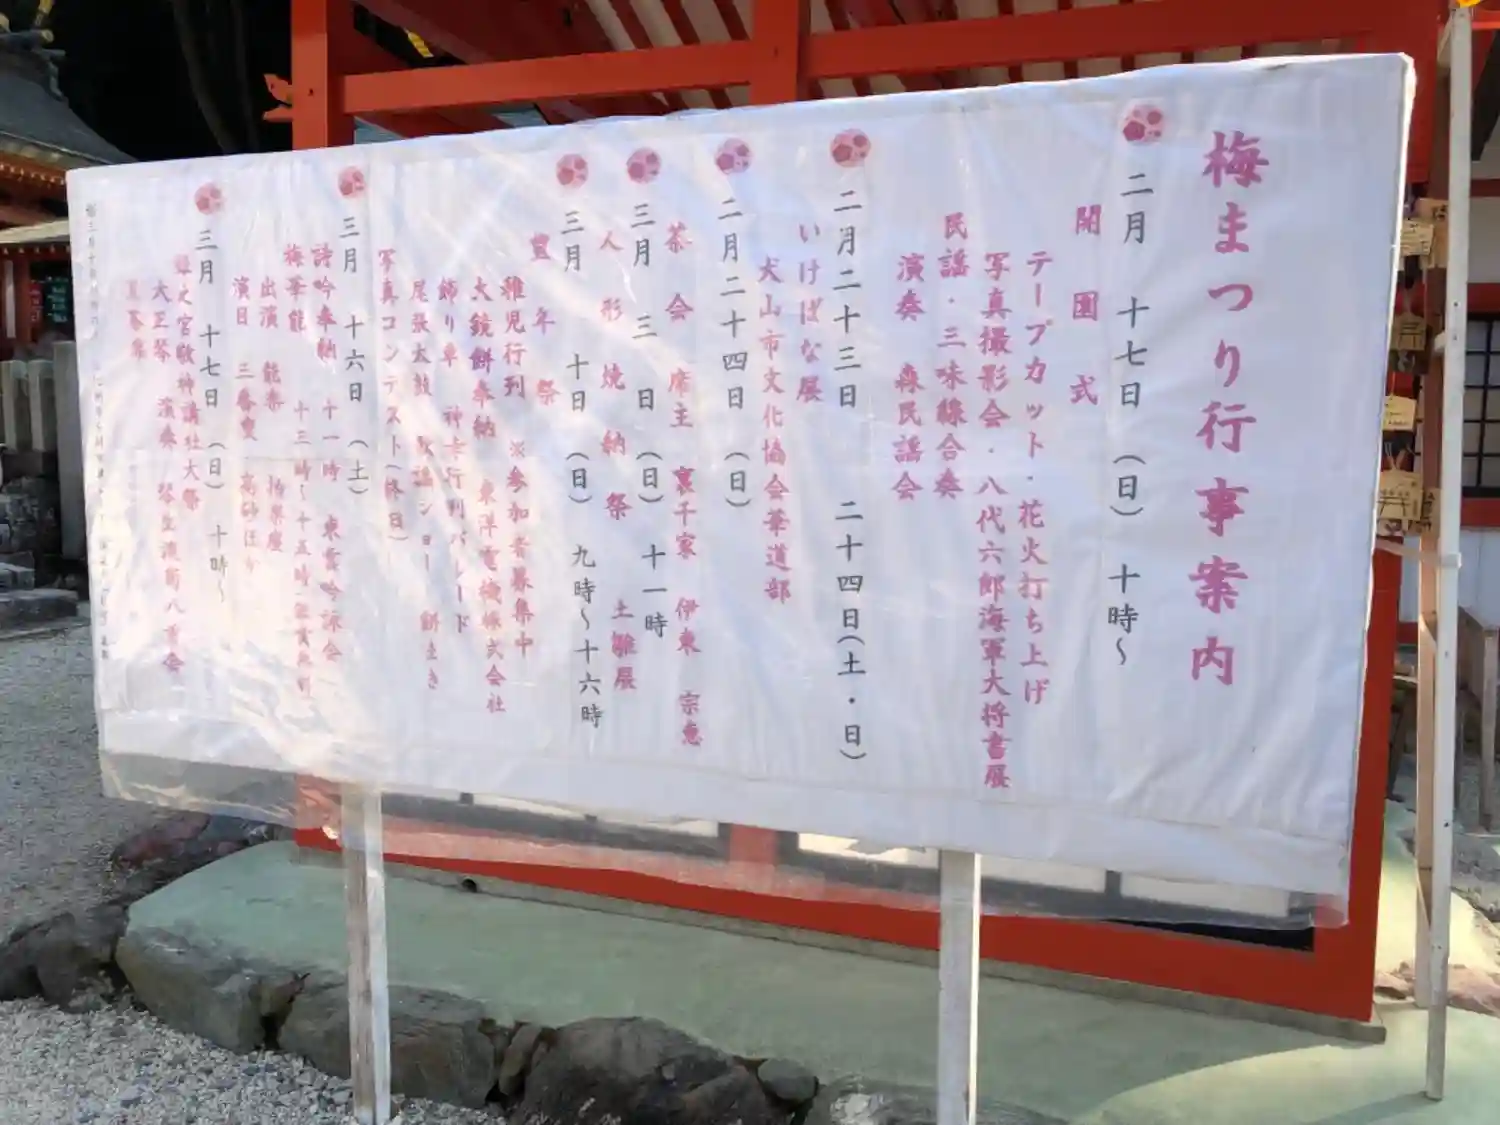 梅まつり行事案内
二月 十七日（日） 十時〜
開園式
テープカット・花火打ち上げ
写真撮影会・八代六郎海軍大将書展
民謡・三味線合奏
演奏 森民謡会
二月二十三日 二十四日（土・日）
いけばな展
犬山市文化協会華道部
二月二十四日（日）
茶会 席主 裏千家 伊東 宗恵
三月 三日（日） 十一時
人形焼納祭 土雛展
三月 十日（日） 九時〜十六時
豊年祭
稚児行列 ※参加者募集中
大鏡餅奉納 東洋電機株式会社
飾り車 神幸行列パレード
尾張太鼓 歌謡ショー 餅まき
写真コンテスト（終日）
三月 十六日（土）
詩吟奉納 十一時 東雲吟詠会
梅華能 十三時〜十五時
出演 能楽
演目 三番叟 高砂ほか
三月 十七日（日） 十時〜
姫之宮敬神講社大祭
大正琴 演奏 琴生流菊八重会